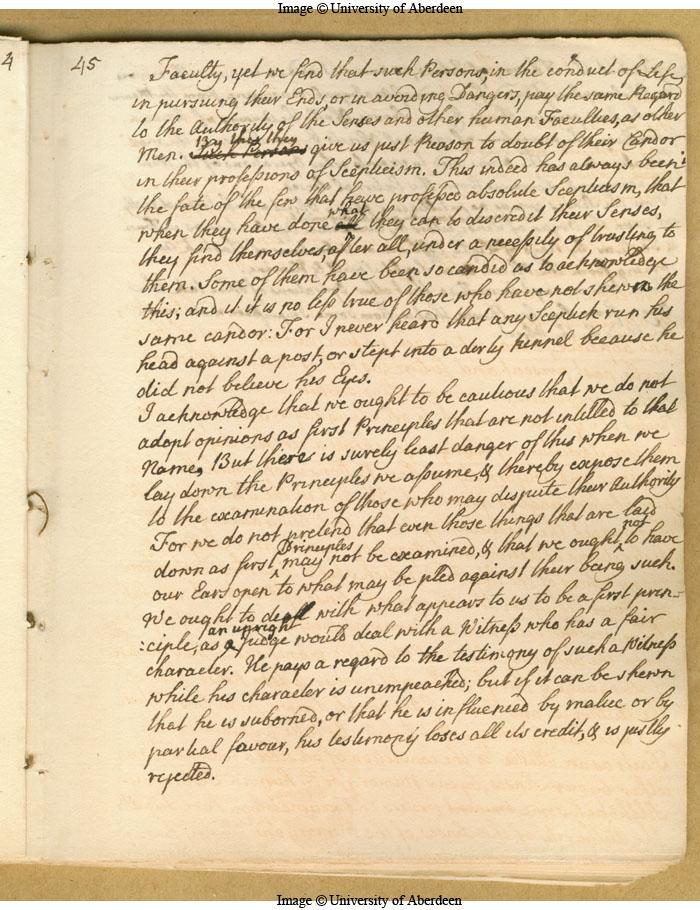 Image © University of Aberdeen
4
45
Faculty, yet we find that such Persons, in the conduct of Life,
in pursuing their Ends, or in avoiding Dangers, pay the same Regard
to the Authority of the Senses and other human Faculties, as other
Men. By this they
Such Persons give us just Reason to doubt of their Candor
in their professions of Scepticism. This indeed has always been
the fate of the few that have professed absolute Scepticism, that
when they have done all what they can to discredit their Senses,
they find themselves, after all, under a necessity of trusting to
them. Some of them have been so candid as to acknowledge
this; and it is no less true of those who have not shewn the
same candor: For I never heard that any Sceptick run his
head against a post, or stept into a dirty kennel because he
did not believe his Eyes.
I acknowledge that we ought to be cautious that we do not
adopt opinions as first Principles that are not intitled to that
Name, But there is surely least danger of this when we
lay down the Principles we assume, & thereby expose them
to the examination of those who may dispute their Authority
For we do not pretend that even those things that are laid
down as first Principles may not be examined, & that we ought not to have
our Ears open to what may be pled against their being such.
We ought to deal with what appears to us to be a first prin-
:ciple, as an upright Judge would deal with a Witness who has a fair
character. He pays a regard to the testimony of such a Witness
while his character is unimpeached; but if it can be shewn
that he is suborned, or that he is influenced by malice or by
partial favour, his testimony loses all its credit, & is justly
rejected.
Image © University of Aberdeen